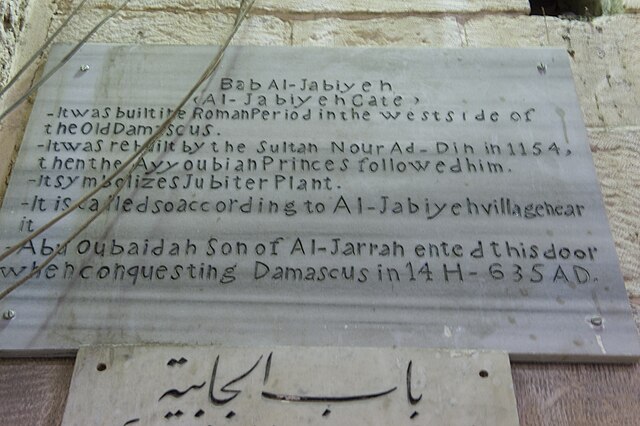 Bab Al-Jabiyeh
(Al-Jabiyeh Cate)
-It was built in Roman Period in the west side of
the Old Damascus.
-It was rebuilt by the Sultan Nour Ad-Din in 1154,
then the Ayyoubian Princes followed him.
-It symbolizes Jubiter Plant.
-It is called so according to Al-Jabiyeh village near
it
-Abu Oubaidah Son of Al-Jarrah ented this door
when conquesting Damascus in 14 H - 635 AD.
باب الجابية